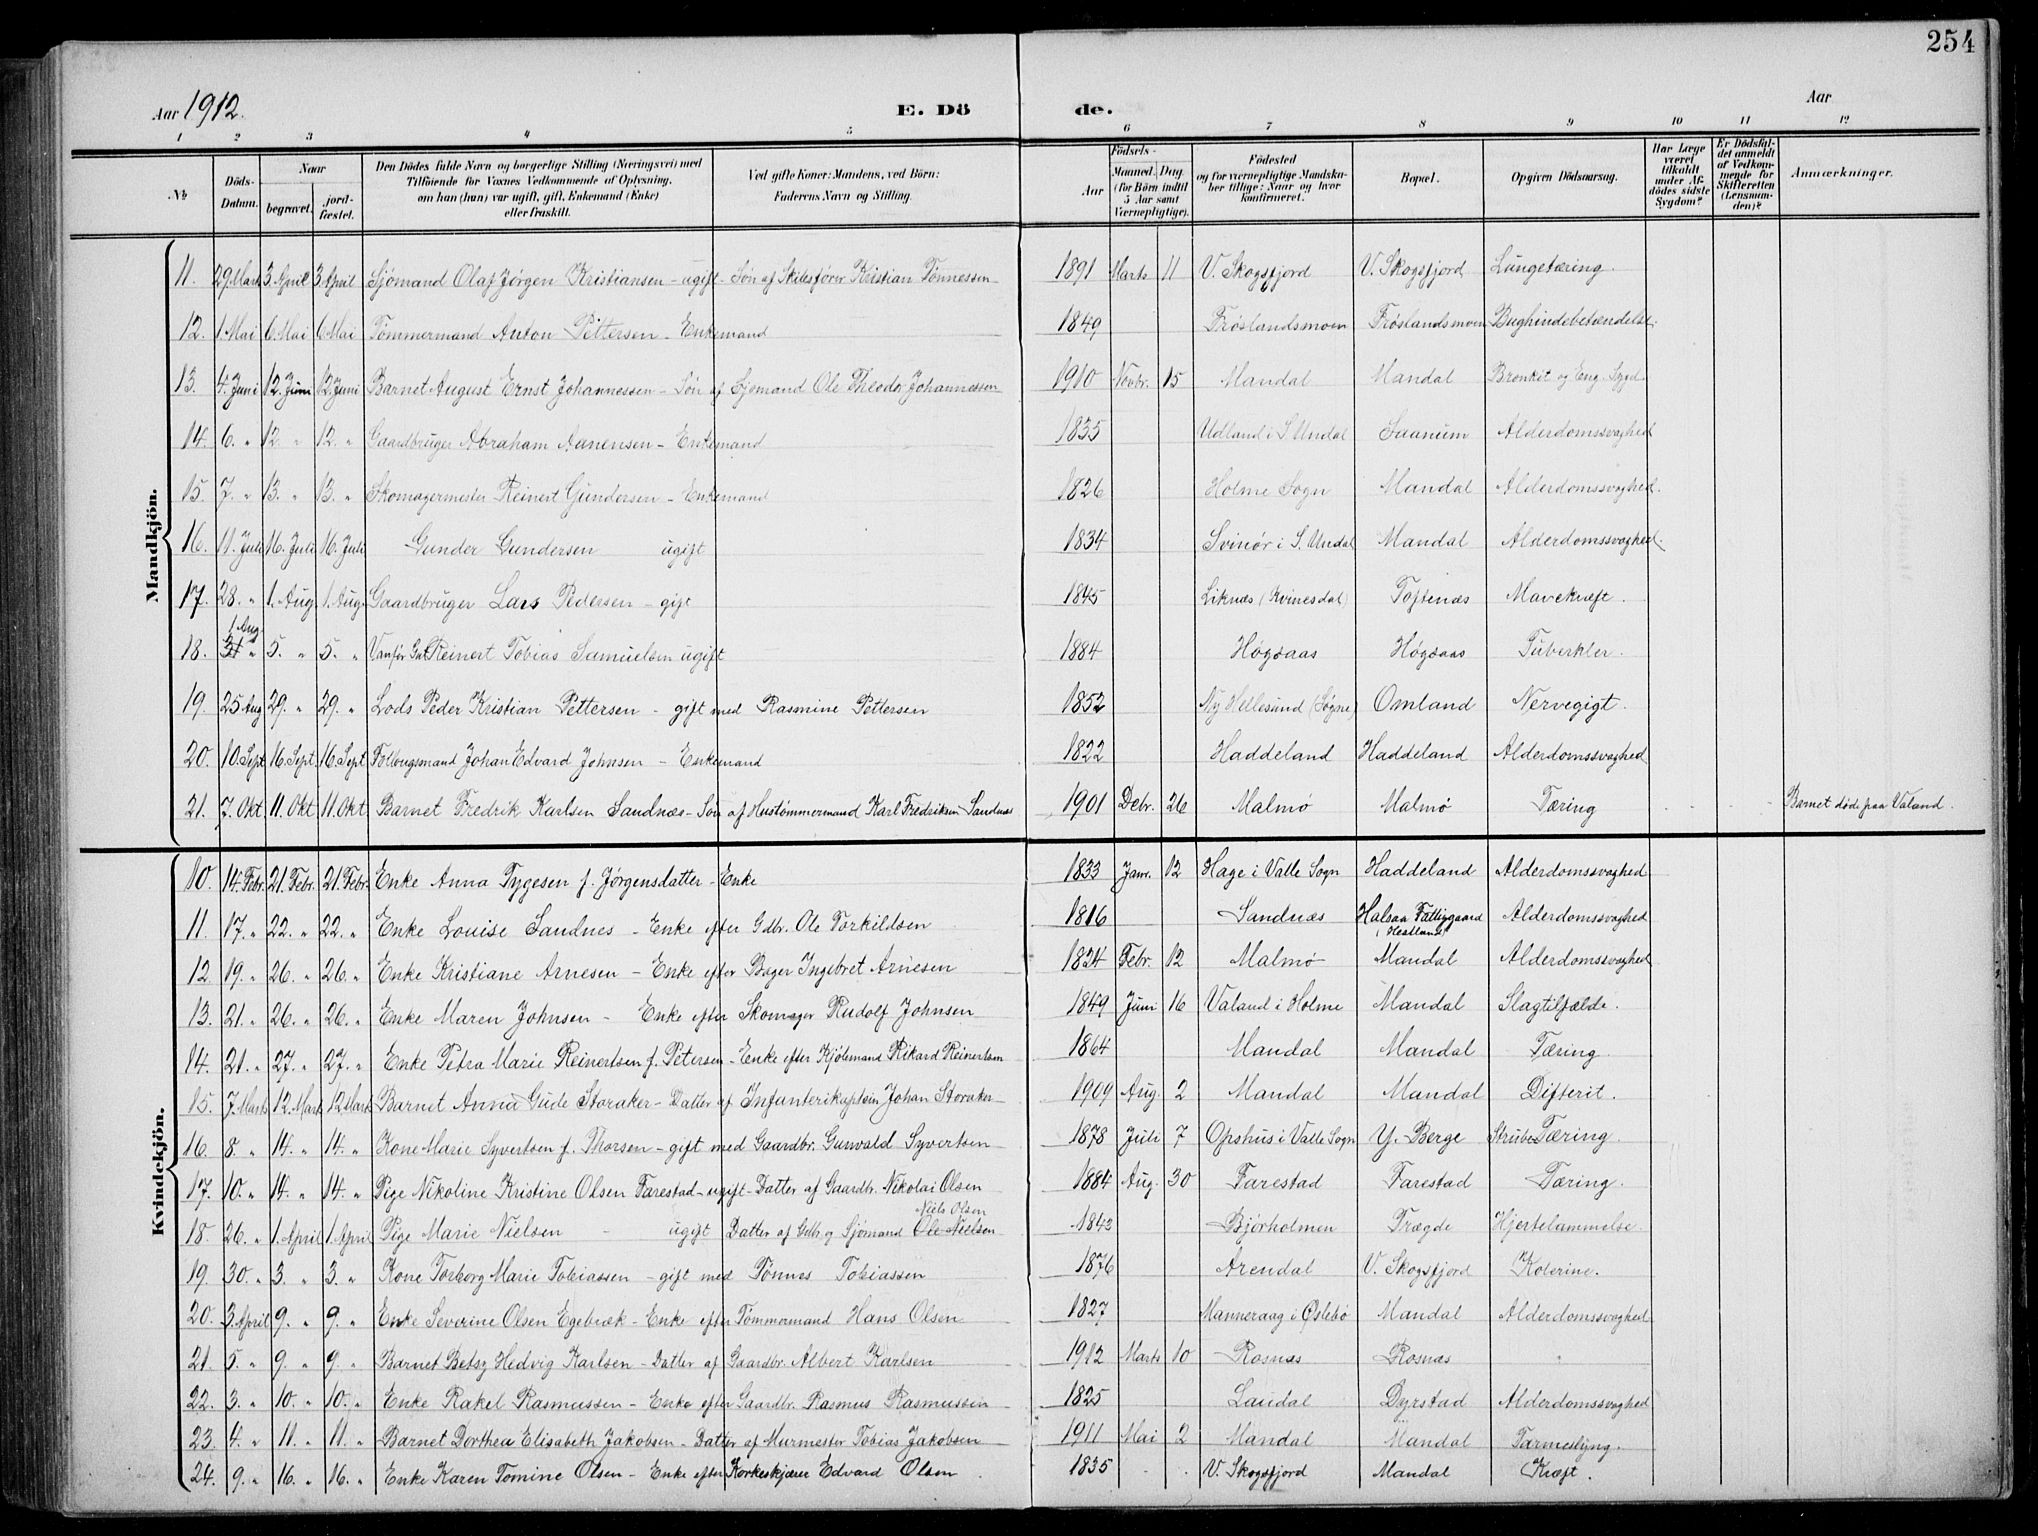 254
Aar 1912. E. Dö de. Aar
1 2 3 4 5 6 7 8 9 10 11 12
№
Döds-Datum.
Naar
begravet. jord-fæstet.
Den Dödes fulde Navn og borgerlige Stilling (Næringsvei) med Tilföiende for Voxnes Vedkommende af Oplysning, om han (hun) var ugift, gift, Enkemand (Enke) eller fraskilt.
Ved gifte Koner: Mandens, ved Börn: Faderens Navn og Stilling.
Födsels-
Aar Maaned. Dag. (for Börn indtil 5 Aar samt Værnepligtige).
Födested og for værnepligtige Mandskaber tillige: Naar og hvor konfirmeret.
Bopæl.
Opgiven Dödsaarsag.
Har Læge været tilkaldt under Afdödes sidste Sygdom?
Er Dödsfaldet anmeldt af Vedkommende for Skifteretten (Lensmanden)?
Anmærkninger.
Mandkjön.
11. 29. Marts 3. April 3. April Sjömand Olaf Jörgen Kristiansen - ugift - Sön af Skibsförer Kristian Tönnessen 1891 Marts 11 V. Skogsfjord V. Skogsfjord Lungetæring.
12. 1. Mai 6. Mai 6. Mai Tömmermand Anton Pettersen - Enkemand 1849 Fröslandsmoen Fröslandsmoen Bughindebetændelse.
13. 4. Juni 12. Juni 12. Juni Barnet August Ernst Johannessen - Sön af Sjömand Ole Theodor Johannessen 1910 Novbr. 15 Mandal Mandal Bronkit og Eng. Syge
14. 6. " 12. " 12. " Gaardbruger Abraham Aanensen - Enkemand 1835 Udland i S. Undal Saanum Alderdomssvaghed
15. 7. " 13. " 13. " Skomagermester Reinert Gundersen - Enkemand 1826 Holme Sogn Mandal Alderdomssvaghed.
16. 11. Juli 16. Juli 16. Juli Gunder Gundersen ugift 1834 Svinör i S. Undal Mandal Alderdomssvaghed.
17. 28. " 1. Aug. 1. Aug. Gaardbruger Lars Pedersen - gift 1845 Liknæs (Kvinesdal) Toftenæs Mavekræft.
1 Aug.
18. 31 " 5. " 5. " Vanför Gut Reinert Tobias Samuelsen ugift 1884 Högsaas Högsaas Tuberkler.
19. 25 Aug 29. " 29. " Lods Peder Kristian Pettersen - gift med Rasmine Pettersen 1852 Ny Hellesund (Sögne) Omland Nervegigt.
20. 10. Sept 16. Sept. 16. Sept Folbugsmand Johan Edvard Johnsen - Enkemand 1822 Haddeland Haddeland Alderdomssvaghed
21. 7. Okt 11. Okt 11. Okt Barnet Fredrik Karlsen Sandnæs - Sön af Hustömmermand Karl Fredriksen Sandnæs 1901 Debr. 26 Malmö Malmö Tæring Barnet döde paa Valand.
Kvindekjön.
10. 14. Febr. 21. Febr. 21. Febr. Enke Anna Tygesen f. Jörgensdatter - Enke 1833 Janr. 12 Hage i Valle Sogn Haddeland Alderdomssvaghed
11. 17. " 22. " 22. " Enke Louise Sandnes - Enke efter Gdbr. Ole Torkildsen 1816 Sandnæs Halsaa Fattiggaard Alderdomssvaghed
12. 19. " 26. " 26. " Enke Kristiane Arnesen - Enke efter Bager Ingebret Arnesen 1824 Febr. 12 Malmö Mandal Alderdomssvaghed
13. 21. " 26. " 26. " Enke Maren Johnsen - Enke efter Skomager Rudolf Johnsen 1849 Juni 16 Valand i Holme Mandal Slagtilfælde.
14. 21. " 27. " 27. " Enke Petra Marie Reinertsen f. Petersen - Enke efter Kjölemand Rikard Reinertsen 1864 Mandal Mandal Tæring.
15. 7. Marts 12. Marts 12. Marts Barnet Anna Gude Storaker - Datter af Infanterikaptein Johan Storaker 1909 Aug. 2 Mandal Mandal Difterit.
16. 8. " 14. " 14. " Kone Marie Syvertsen f. Thorsen - gift med Gaardbr. Gunvald Syvertsen 1878 Juli 7 Opshus i Valle Sogn Y. Berge Strube Tæring.
17. 10. " 14. " 14. " Pige Nikoline Kristine Olsen Farestad - ugift - Datter af Gaardbr. Nikolai Olsen 1884 Aug. 30 Farestad Farestad Tæring.
Niels Olsen
18. 26. " 1. April 1. April Pige Marie Nielsen - ugift Datter af Gdbr. og Sjömand Ole Nielsen 1842 Bjørholmen Trægde Hjertelammelse.
19. 30. " 3. " 3. " Kone Torborg Marie Tobiassen - gift med Tönnes Tobiassen 1876 Arendal V. Skogsfjord Kolerine.
20. 3. April 9. " 9. " Enke Severine Olsen Egebæk - Enke efter Tömmermand Hans Olsen 1827 Manneraag i Øslebö Mandal Alderdomssvaghed
21. 5. " 9. " 9. " Barnet Betsy Hedvig Karlsen - Datter af Gaardbr. Albert Karlsen 1912 Marts 10 Rosnæs Rosnæs "
22. 3. " 10. " 10. " Enke Rakel Rasmussen - Enke efter Gaardbr. Rasmus Rasmussen 1825 Laudal Dyrstad Alderdomssvaghed
23. 4. " 11. " 11. " Barnet Dorthea Elisabeth Jakobsen - Datter af Murmester Tobias Jakobsen 1911 Mai 2 Mandal Mandal Tarmeslyng.
24. 9. " 16. " 16. " Enke Karen Tomine Olsen - Enke efter Korkeskjærer Edvard Olsen 1835 V. Skogsfjord Mandal Kræft.